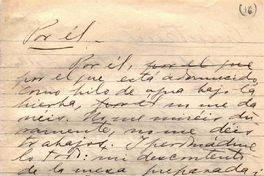 (16)
Por él.
Por él, por el que
por el que está adormecido
como hilo de agua bajo la
hierba, no me da
ñéis. No me miréis du
ramente, no me déis
trabajos. I perdonadme
lo todo: mi descontento
de la mesa preparada,